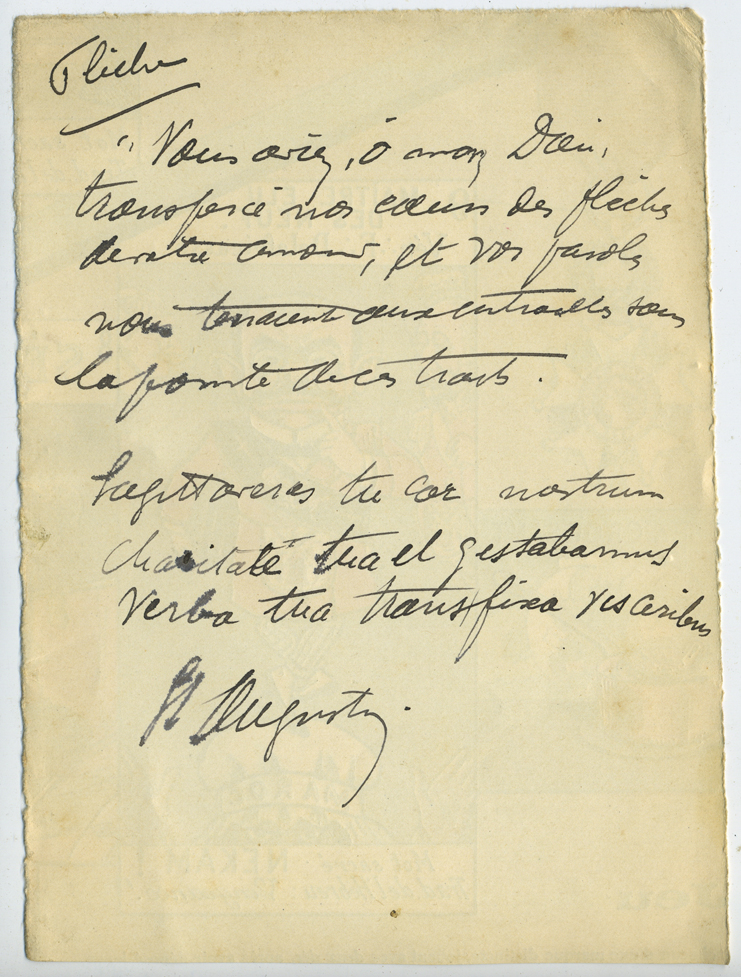 Flèche
"Vous aviez, ô mon Dieu,
transpercé nos cœurs des flèches
de votre amour, et vos paroles
nous tenaient aux entrailles sous
la pointe de ces traits.
Sagittaveras tu cor nostrum
charitate tua et gestabamus
Verba tua transfixa visceribus
St Augustin.